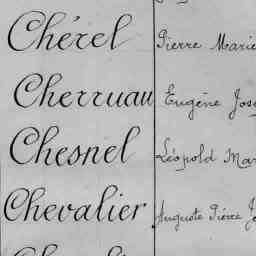 Chérel Pierre Marie
Cherruau Eugène
Chesnel Léopold
Chevalier Auguste Pierre